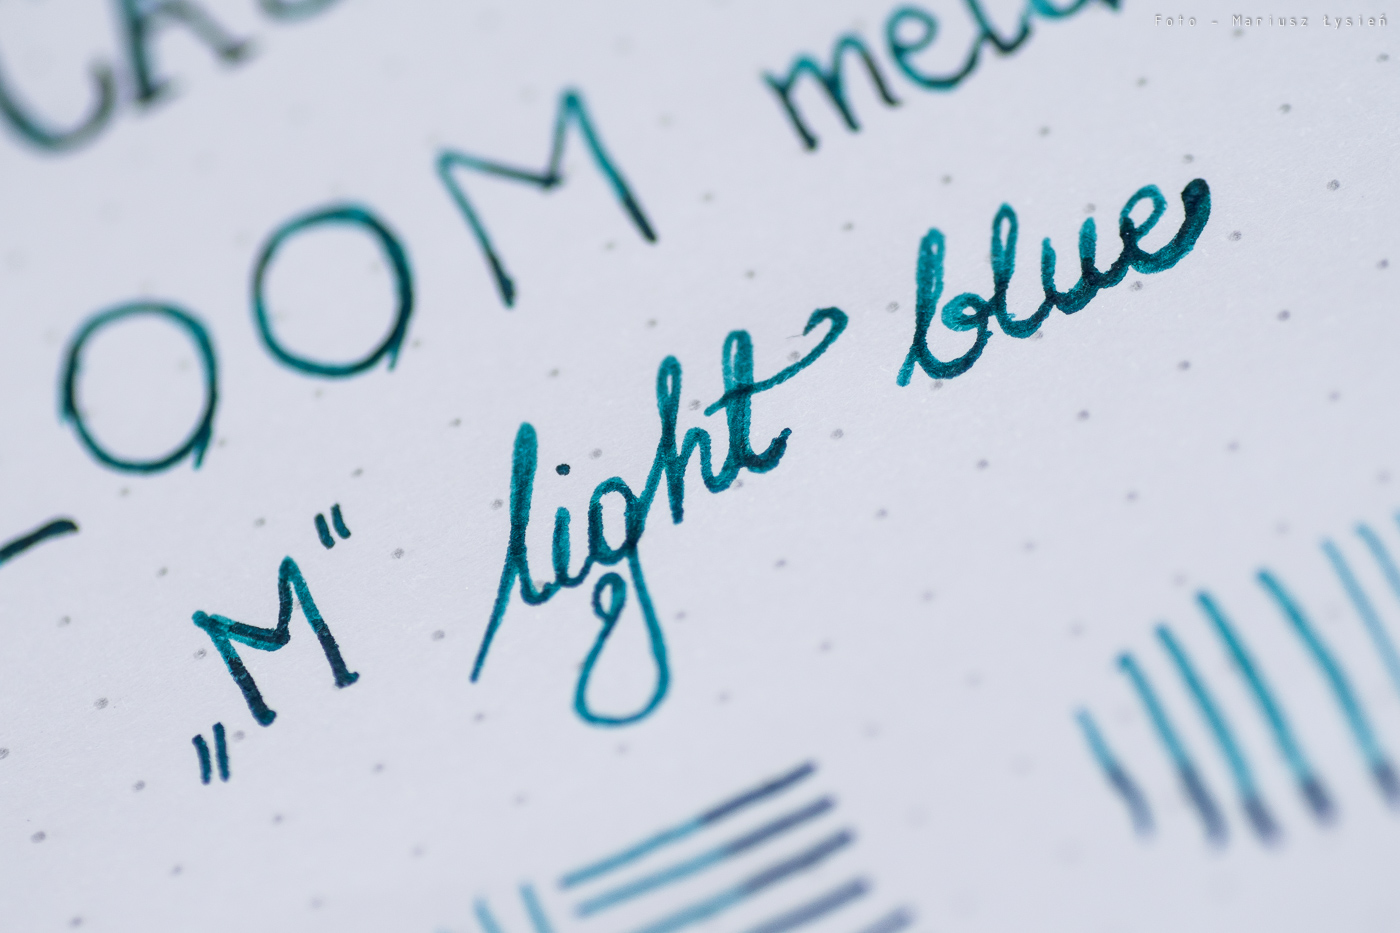 Foto - Mariusz Łysień
OOM
„M” light blue